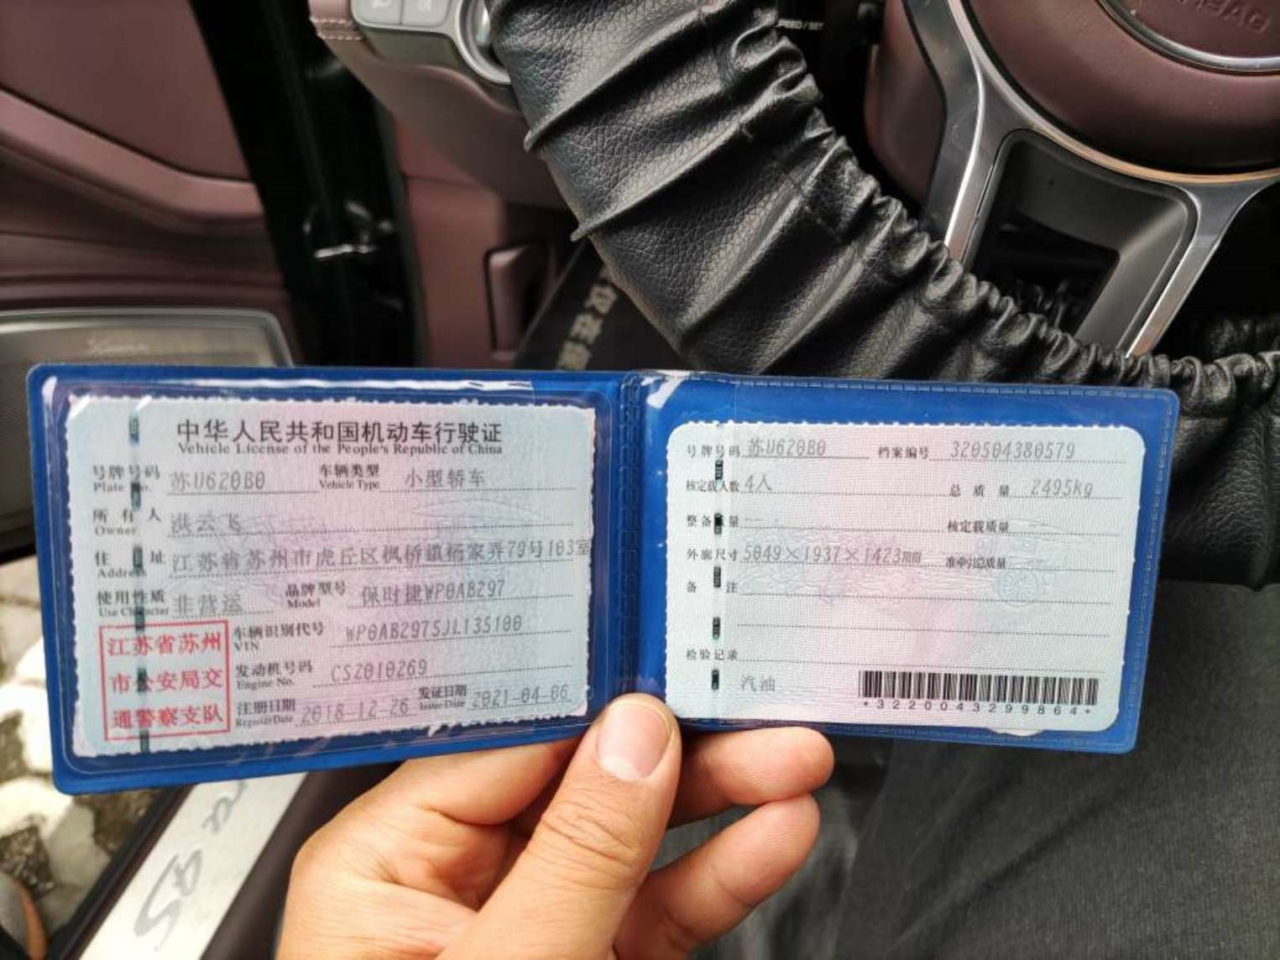 中华人民共和国机动车行驶证
Vehicle License of the People's Republic of China
号牌号码 苏U620B0 车辆类型 小型轿车
Plate No. Vehicle Type
所有人 洪云飞
Owner
住址 江苏省苏州市虎丘区枫桥镇杨家弄79号103室
Address
使用性质 非营运 品牌型号 保时捷WP0AB297
Use Character Model
江苏省苏州
市公安局交
通警察支队
车辆识别代号 WP0AB2975JL135100
VIN
发动机号码 CS2010269
Engine No.
注册日期 2018-12-26 发证日期 2021-04-06
Register Date Issue Date
号牌号码 苏U620B0 档案编号 320504380579
核定载人数 4人 总质量 2495kg
整备质量 -- 核定载质量
外廓尺寸 5049×1937×1423mm 准牵引总质量
备注
检验记录
汽油
*3220043299864*
AIRBAG